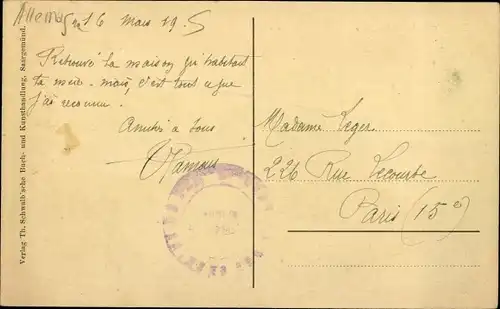 Allemag
16 Mars 19.5
Retrouvé la maison qu'habitait
ta mère. mais, c'est tout ce que
j'ai reconnu.
Amitiés à tous
Madame Leger
226 Rue Lecourbe
Paris (15e)
Verlag Th. Schwalb'sche Buch- und Kunsthandlung, Saargemünd.